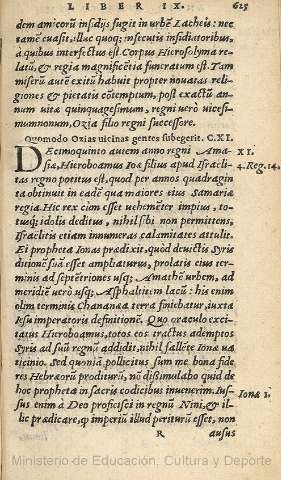 LIBER IX. 625
dem amicorũ insidijs fugit in urbẽ Lacheis: nec
tamẽ euasit, illac quoq; insecutis insidiatoribus,
à quibus interfectus est. Corpus Hierosolyma re-
latũ, & regia magnificẽtia funeratum est. Tam
miserũ autẽ exitũ habuit propter nouatas reli-
giones & pietatis cõtemptum, post exactũ an-
num uitæ quinquagesimum, regni uerò uicesi-
mumnonum, Ozia filio regni successore.
Quomodo Ozias uicinas gentes subegerit. C.XI.
DEcimoquinto autem anno regni Ama- XI.
siæ, Hieroboamus Ioæ filius apud Israeli- 4. Reg. 14.
tas regno potitus est, quod per annos quadragin
ta obtinuit in eadẽ qua maiores eius Samariæ
regia. Hic rex cùm esset uehemẽter impius, to-
tusq; idolis deditus, nihil sibi non permittens,
Israelitis etiam innumeras calamitates attulit.
Et propheta Ionas prædixit, quòd deuictis Syris
ditionẽ suã esset ampliaturus, prolatis eius ter-
minis ad septẽtriones usq; Amathẽ urbem, ad
meridiẽ uerò usq; Asphaltitem lacũ: his enim
olim terminis Chananæa terra finiebatur, iuxta
Iesu imperatoris definitionẽ. Quo oraculo exci-
tatus Hieroboamus, totos eos tractus ademptos
Syris ad suũ regnũ addidit, nihil fallẽte Ionæ ua
ticinio. Sed quoniã pollicitus sum me bona fide
res Hebræorũ proditurũ, nõ dissimulabo quid de
hoc propheta in sacris codicibus inuenerim. Ius- Ionæ 1.
sus enim à Deo proficisci in regnũ Nini, & il-
lic prædicare, q̃ imperiũ illud periturũ esset, non
R ausus
Ministerio de Educación, Cultura y Deporte